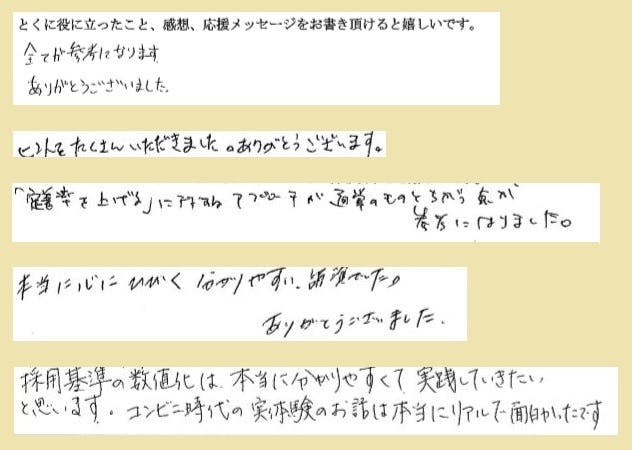 とくに役に立ったこと、感想、応援メッセージをお書き頂けると嬉しいです。
全てが参考になります
ありがとうございました。
ヒントをたくさんいただきました。ありがとうございます。
「定着率を上げる」に対する アプローチが 通常のものとちがう点が
参考になりました。
本当に心にひびく 分かりやすい、講演でした。
ありがとうございました。
採用基準の数値化は、本当に分かりやすくて実践していきたい
と思います。コンビニ時代の実体験のお話は本当にリアルで面白かったです